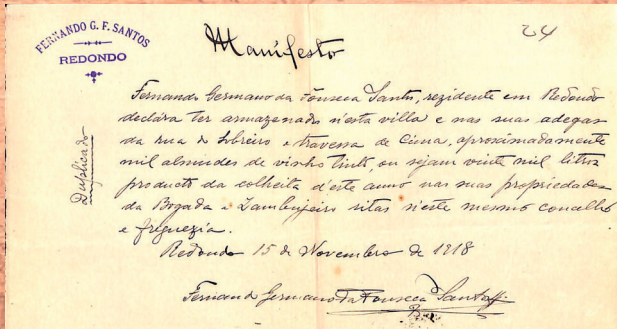 FERNANDO G. F. SANTOS
REDONDO
24
Manifesto
Duplicado
Fernando Germano da Fonseca Santos, rezidente em Redondo
declára ter armazenado n'esta villa e nas suas adegas
da rua do e travessa de Cima, aproximadamente
mil almudes de vinho tinto, ou sejam vinte mil litros
producto da colheita d'este anno nas suas propriedades
da e Zambujeiro sitas n'este mesmo concelho
e freguezia.
Redondo 15 de Novembro de 1918
Fernando Germano da Fonseca Santos